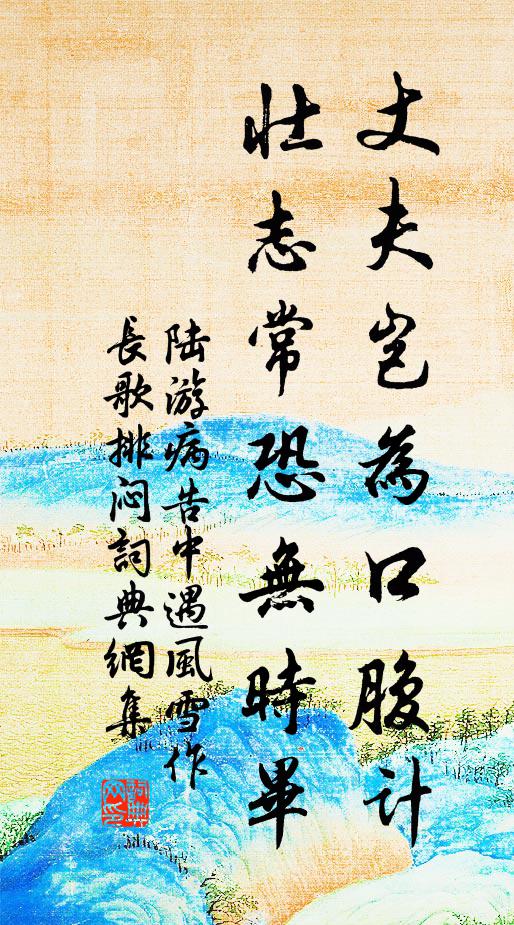 丈夫岂為口腹计
壮志常恐無時畢
陆游病告中遇風雪作
長歌排闷詞典網集